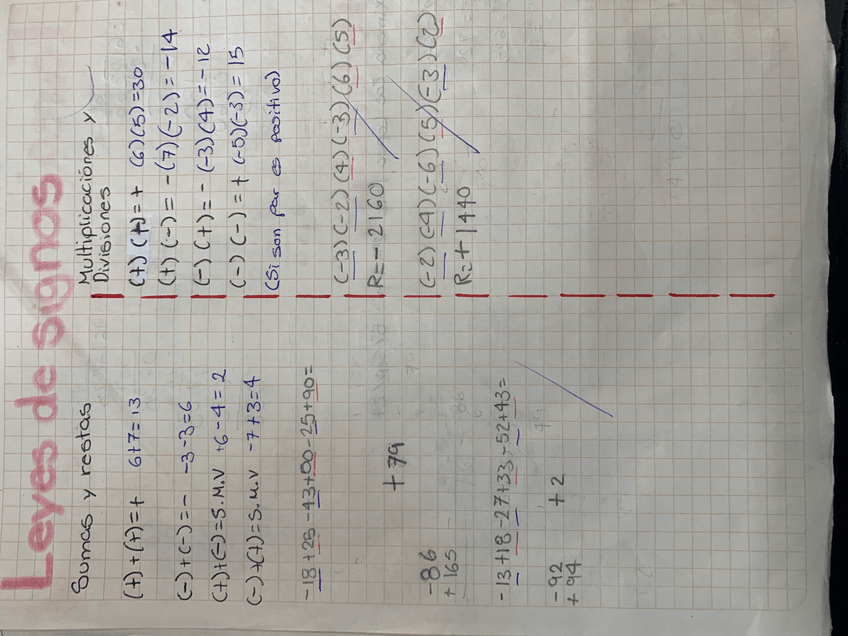 Leyes de signos
Sumas y restas
(+)+(+)=+ 6+7=13
(-)+(-)=- -3-3=6
(+)+(-)=S.M.V +6-4=2
(-)+(+)=S.M.V -7+3=4
-18+25-43+50-25+90=
+79
-86
+165
-13+18-27+33-52+43=
-92 +2
+94
Multiplicaciónes y
Divisiones
(+)(+)=+ (6)(5)=30
(+)(-)=-(7)(-2)=-14
(-)(+)=- (-3)(4)=-12
(-)(-)=+ (-5)(-3)=15
(Si son par es positivo)
(-3)(-2)(4)(-3)(6)(5)
R=-2160
(-2)(-4)(-6)(5)(-3)(2)
R=+1440